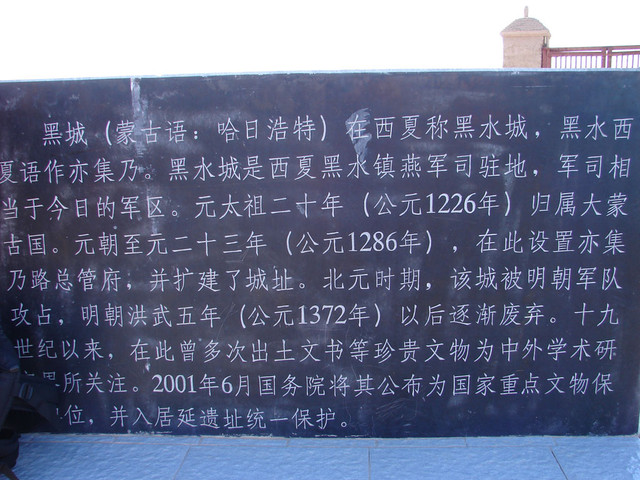 黑城（蒙古语：哈日浩特）在西夏称黑水城，黑水西
夏语作亦集乃。黑水城是西夏黑水镇燕军司驻地，军司相
当于今日的军区。元太祖二十年（公元1226年）归属大蒙
古国。元朝至元二十三年（公元1286年），在此设置亦集
乃路总管府，并扩建了城址。北元时期，该城被明朝军队
攻占，明朝洪武五年（公元1372年）以后逐渐废弃。十九
世纪以来，在此曾多次出土文书等珍贵文物为中外学术研
所关注。2001年6月国务院将其公布为国家重点文物保
位，并入居延遗址统一保护。